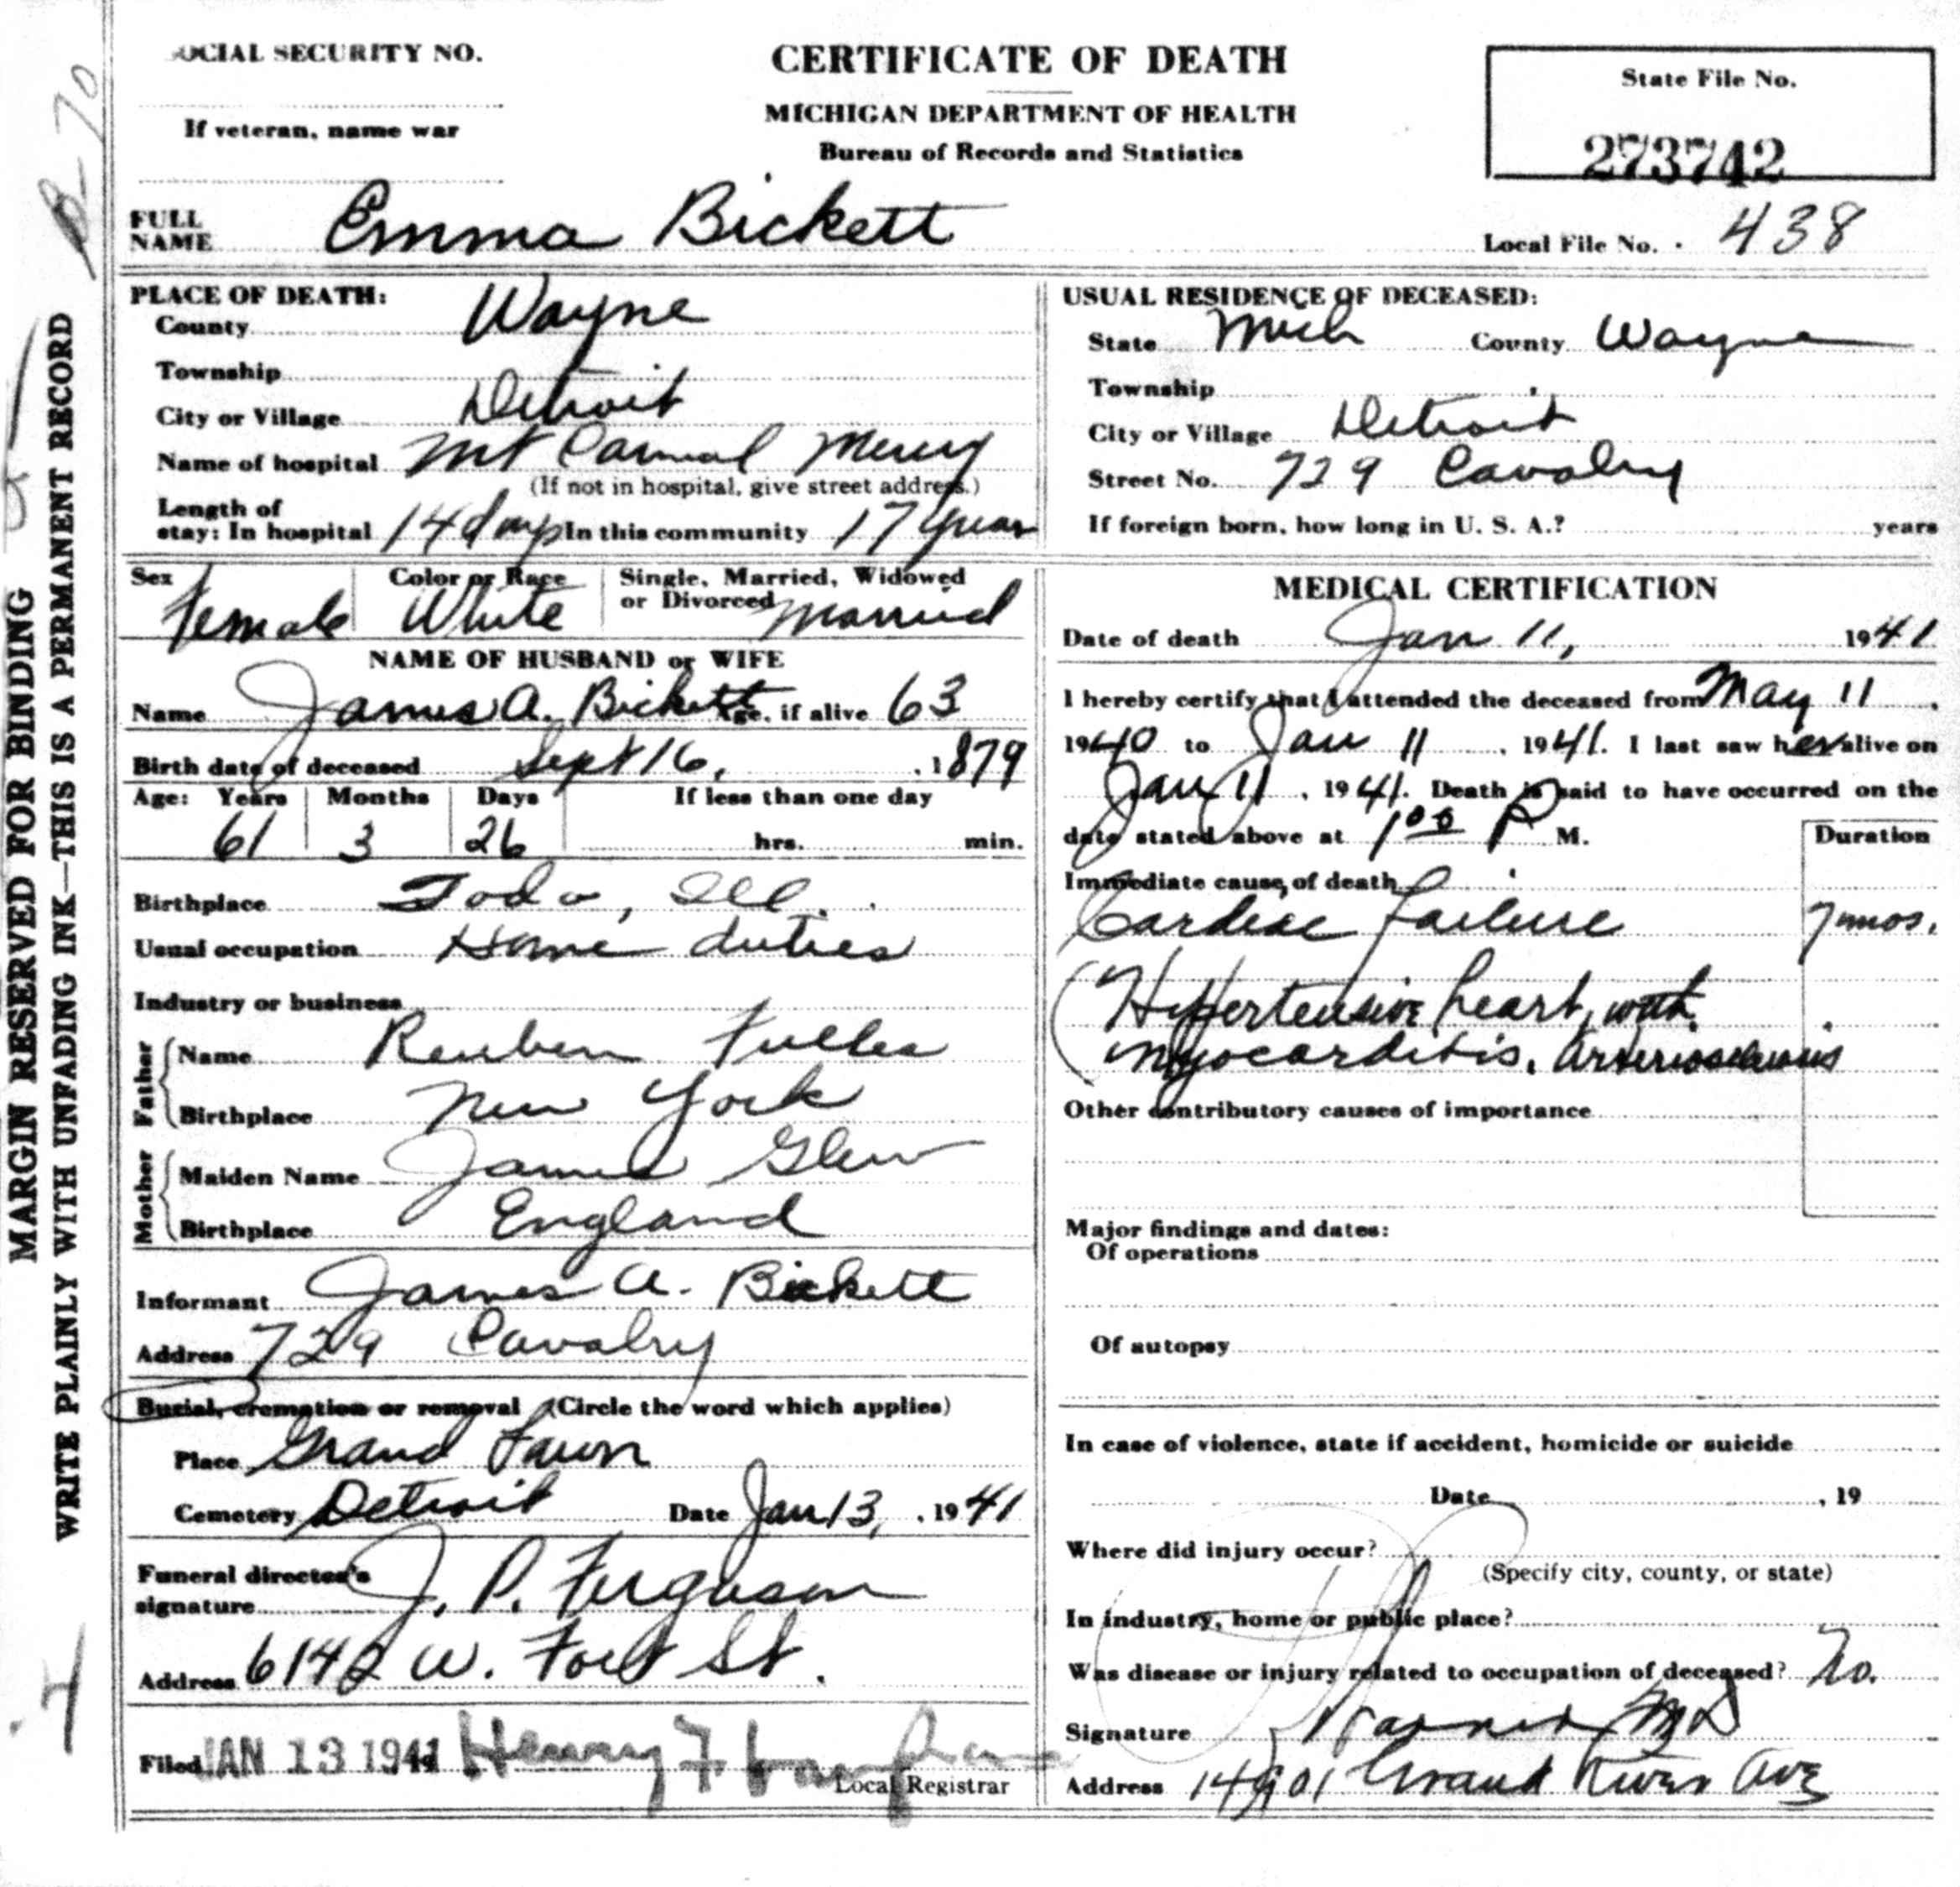 SOCIAL SECURITY NO.
If veteran, name war
CERTIFICATE OF DEATH
MICHIGAN DEPARTMENT OF HEALTH
Bureau of Records and Statistics
State File No.
273742
FULL NAME Emma Bickett
Local File No. 438
B-70
MARGIN RESERVED FOR BINDING
WRITE PLAINLY WITH UNFADING INK—THIS IS A PERMANENT RECORD
PLACE OF DEATH:
County Wayne
Township
City or Village Detroit
Name of hospital Mt Carmel Mercy
(If not in hospital, give street address.)
Length of
stay: In hospital 14 days In this community 17 years
USUAL RESIDENCE OF DECEASED:
State Mich County Wayne
Township
City or Village Detroit
Street No. 729 Cavalry
If foreign born, how long in U. S. A.? years
Sex Female Color or Race White Single, Married, Widowed or Divorced Married
NAME OF HUSBAND or WIFE
Name James A. Bickett Age, if alive 63
Birth date of deceased Sept 16, , 1879
Age: Years Months Days If less than one day
61 3 26 hrs. min.
Birthplace Ill.
Usual occupation Home duties
Industry or business
Father
Name Reuben Fuller
Birthplace New York
Mother
Maiden Name Glew
Birthplace England
Informant James A. Bickett
Address 729 Cavalry
Burial, cremation or removal (Circle the word which applies)
Place Grand Lawn
Cemetery Detroit Date Jan 13, , 1941
Funeral director's
signature J. P. Ferguson
Address 6142 W. Fort St.
Filed JAN 13 1941 Henry F.
Local Registrar
MEDICAL CERTIFICATION
Date of death Jan 11, 1941
I hereby certify that I attended the deceased from May 11 ,
1940 to Jan 11 , 1941. I last saw her alive on
Jan 11 , 1941. Death is said to have occurred on the
date stated above at 1 00 P M.
Duration
Immediate cause of death
Cardiac failure 7 mos.
(Hypertensive heart, with
myocarditis. Arteriosclerosis
Other contributory causes of importance
Major findings and dates:
Of operations
Of autopsy
In case of violence, state if accident, homicide or suicide
Date , 19
Where did injury occur?
(Specify city, county, or state)
In industry, home or public place?
Was disease or injury related to occupation of deceased? No.
Signature MD
Address 14901 Grand River Ave